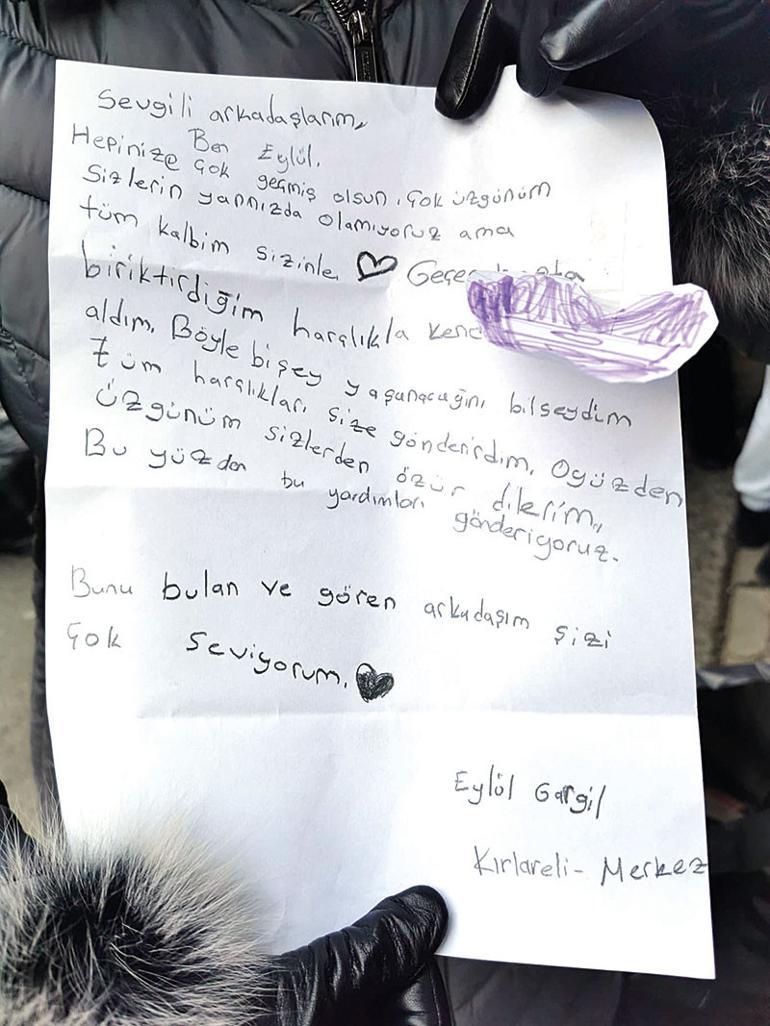 Sevgili arkadaşlarım,
Ben Eylül.
Hepinize çok geçmiş olsun. Çok üzgünüm
Sizlerin yanınızda olamıyoruz ama
tüm kalbim sizinle ♡
biriktirdiğim harçlıkla
aldım. Böyle bişey yaşanacağını bilseydim
tüm harçlıkları size gönderirdim. Oyüzden
üzgünüm sizlerden özür dilerim,,
Bu yüzden bu yardımları gönderiyoruz.
Bunu bulan ve gören arkadaşım sizi
çok seviyorum. ♥
Eylül Gargil
Kırlareli - Merkez